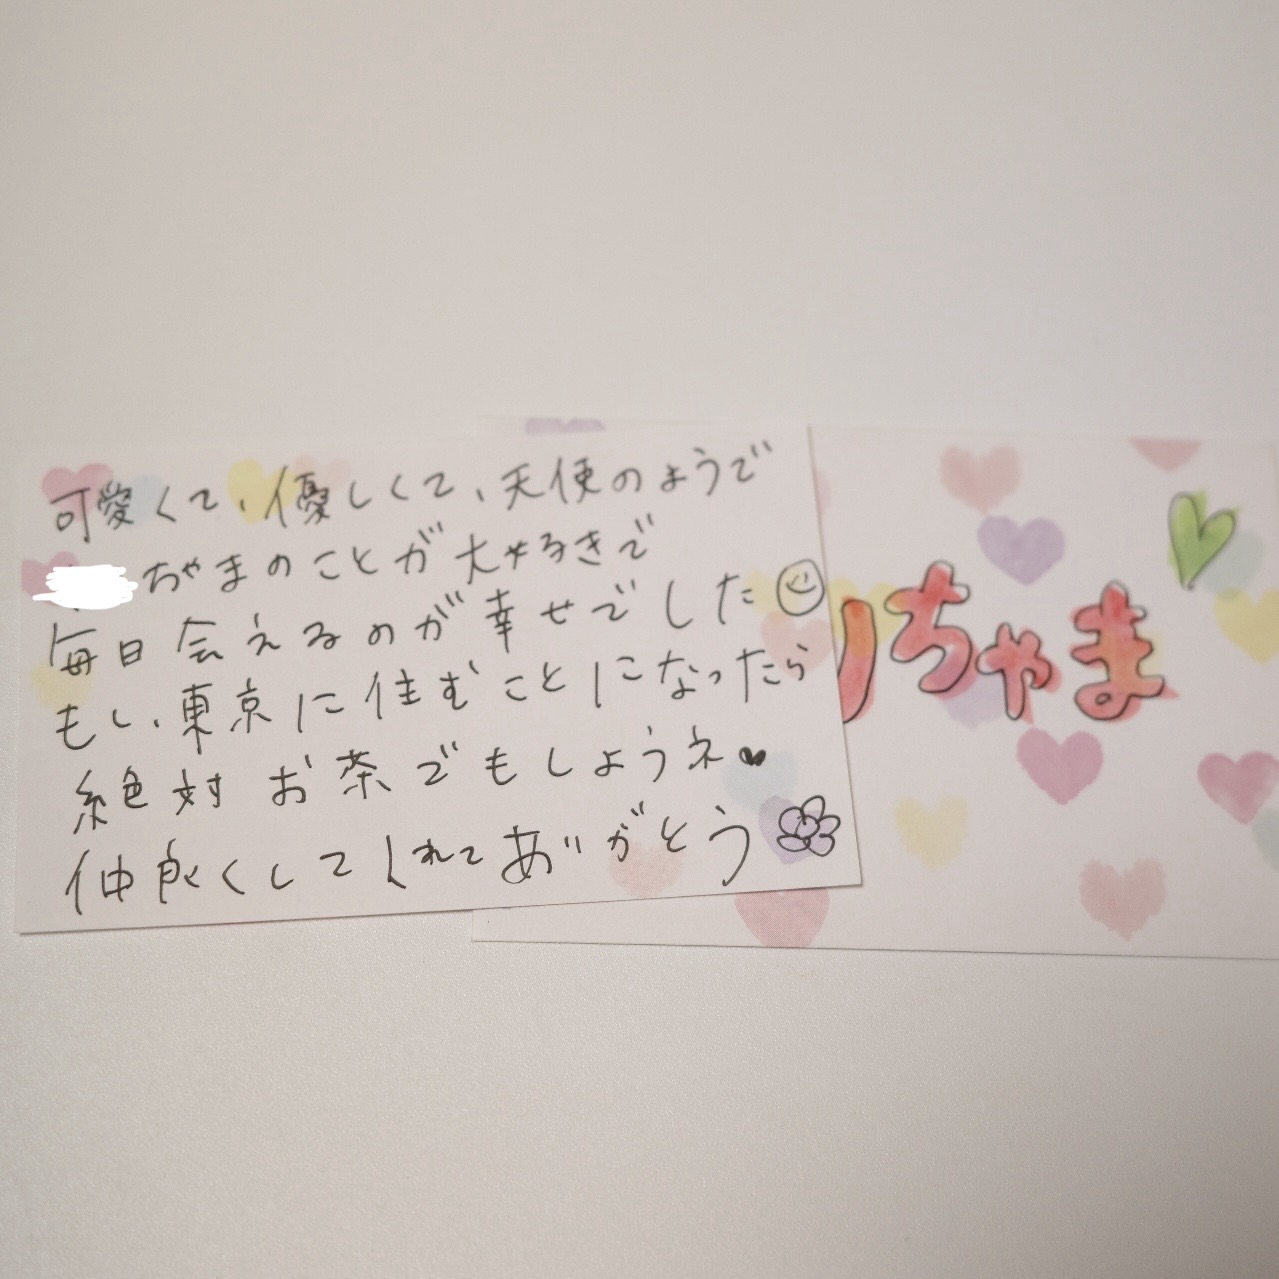 可愛くて、優しくて、天使のようで
ちゃまのことが大好きで
毎日会えるのが幸せでした
もし、東京に住むことになったら
絶対お茶でもしようネ♥
仲良くしてくれてありがとう
りちゃま